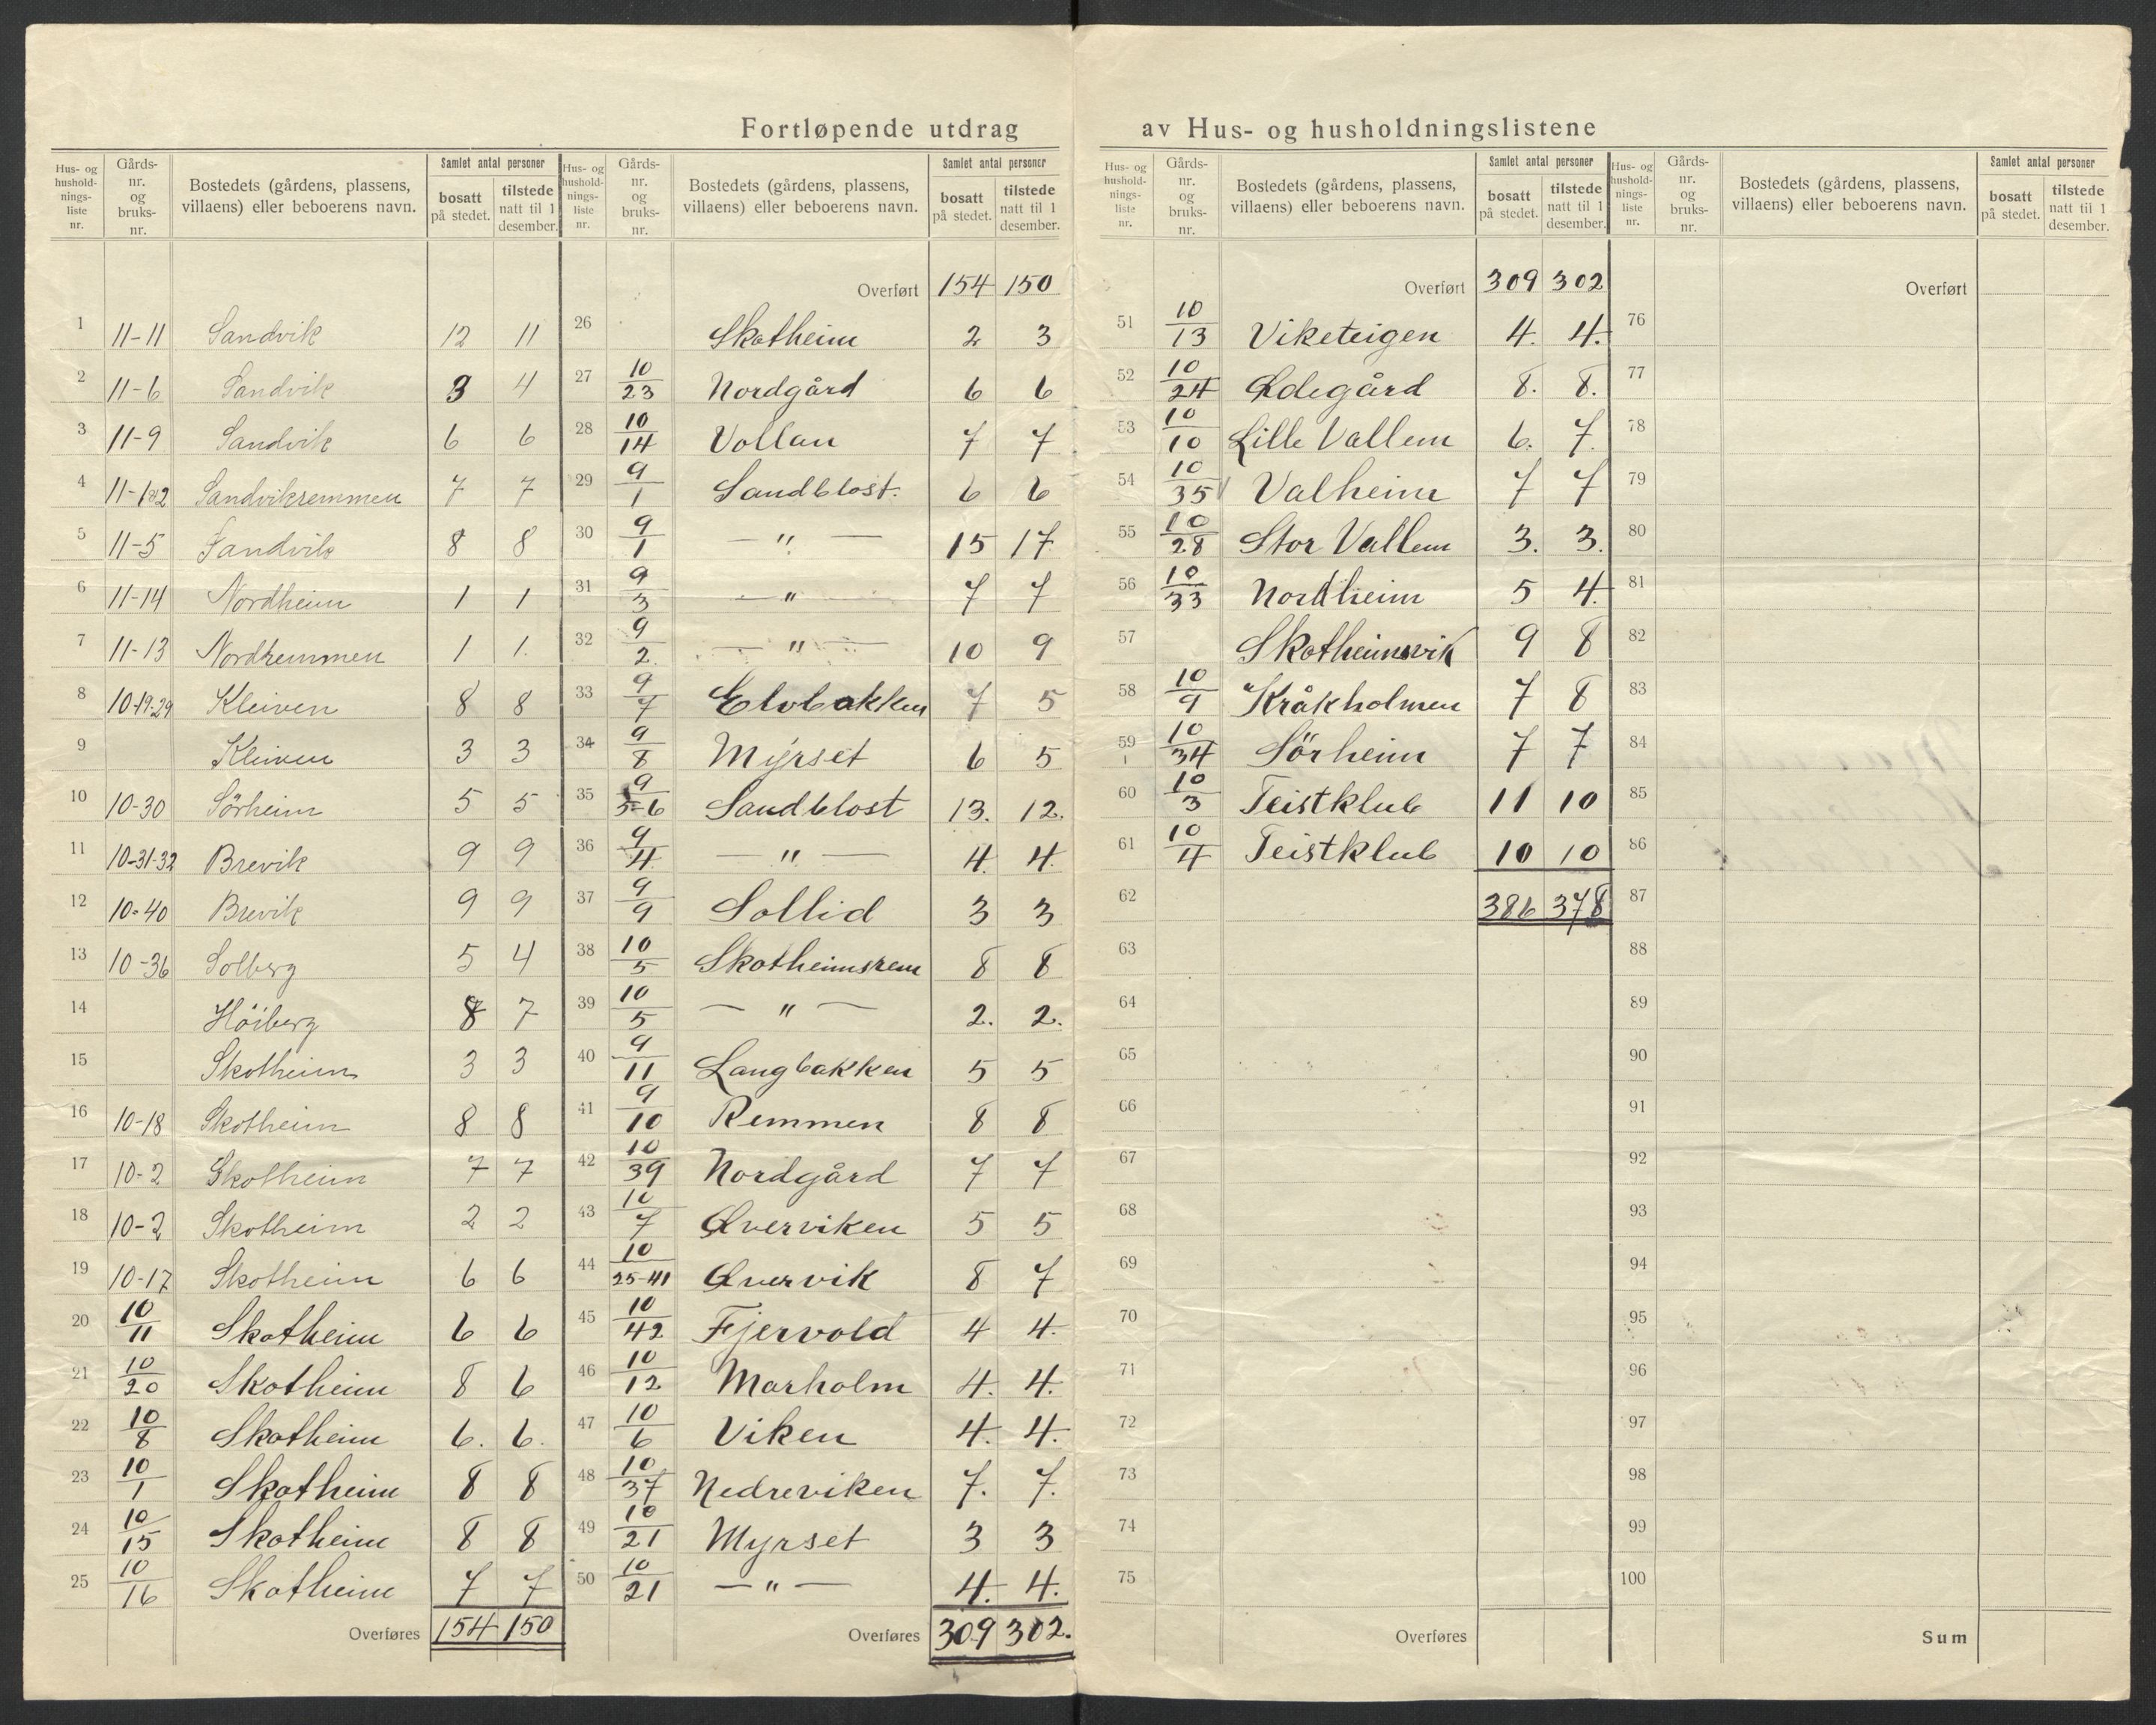 Fortløpende utdrag av Hus- og husholdningslistene
Hus- og husholdnings-liste nr. | Gårds-nr. og bruks-nr. | Bostedets (gårdens, plassens, villaens) eller beboerens navn. | Samlet antal personer: bosatt på stedet. | tilstede natt til 1 desember.
1 11-11 Sandvik 12 11
2 11-6 Sandvik 3 4
3 11-9 Sandvik 6 6
4 11-1 2 Sandvikremmen 7 7
5 11-5 Sandvik 8 8
6 11-14 Nordheim 1 1
7 11-13 Nordremmen 1 1.
8 10-19-29 Kleiven 8 8
9 Kleiven 3 3
10 10-30 Sörheim 5 5
11 10-31-32 Brevik 9 9
12 10-40 Brevik 9 9
13 10-36 Solberg 5 4
14 Höiberg 8 7
15 Skotheim 3 3
16 10-18 Skotheim 8 8
17 10-2 Skotheim 7 7
18 10-2 Skotheim 2 2
19 10-17 Skotheim 6 6
20 10/11 Skotheim 6 6
21 10/20 Skotheim 8 6
22 10/8 Skotheim 6. 6.
23 10/1 Skotheim 8 8
24 10/15 Skotheim 8 8
25 10/16 Skotheim 7 7
Overføres 154 150
Hus- og husholdnings-liste nr. | Gårds-nr. og bruks-nr. | Bostedets (gårdens, plassens, villaens) eller beboerens navn. | Samlet antal personer: bosatt på stedet. | tilstede natt til 1 desember.
Overført 154 150
26 Skotheim 2 3
27 10/23 Nordgård 6 6
28 10/14 Vollan 7 7
29 9/1 Sandblost. 6 6
30 9/1 — " — 15 17
31 9/3 — " — 7 7
32 9/2. — " — 10 9
33 9/7 Elvbakken 7 5
34 9/8 Myrset 6 5
35 9/5-6 Sandblost 13. 12.
36 9/4 — " — 4. 4.
37 9/9 Sollid 3 3
38 10/5 Skotheimsrem 8 8
39 10/5 — " — 2. 2.
40 9/11 Langbakken 5 5
41 9/10 Remmen 8 8
42 10/39 Nordgård 7 7
43 10/7 Øverviken 5 5
44 10/25-41 Øvervik 8 7
45 10/42 Fjervold 4 4.
46 10/12 Marholm 4. 4.
47 10/6 Viken 4. 4.
48 10/37 Nedreviken 7. 7.
49 10/21 Myrset 3 3
50 10/21 — " — 4. 4.
Overføres 309 302.
Hus- og husholdnings-liste nr. | Gårds-nr. og bruks-nr. | Bostedets (gårdens, plassens, villaens) eller beboerens navn. | Samlet antal personer: bosatt på stedet. | tilstede natt til 1 desember.
Overført 309 302
51 10/13 Viketeigen 4. 4.
52 10/24 Ødegård 8. 8.
53 10/10 Lille Vallem 6. 7.
54 10/35 Valheim 7 7
55 10/28 Stor Vallem 3. 3.
56 10/33 Nordheim 5 4.
57 Skotheimsvik 9 8
58 10/9 Kråkholmen 7 8
59 10/34 Sörheim 7 7
60 10/3 Teistklub 11 10
61 10/4 Teistklub 10 10
62 386 378
63
64
65
66
67
68
69
70
71
72
73
74
75
Overføres
Hus- og husholdnings-liste nr. | Gårds-nr. og bruks-nr. | Bostedets (gårdens, plassens, villaens) eller beboerens navn. | Samlet antal personer: bosatt på stedet. | tilstede natt til 1 desember.
Overført
76
77
78
79
80
81
82
83
84
85
86
87
88
89
90
91
92
93
94
95
96
97
98
99
100
Sum